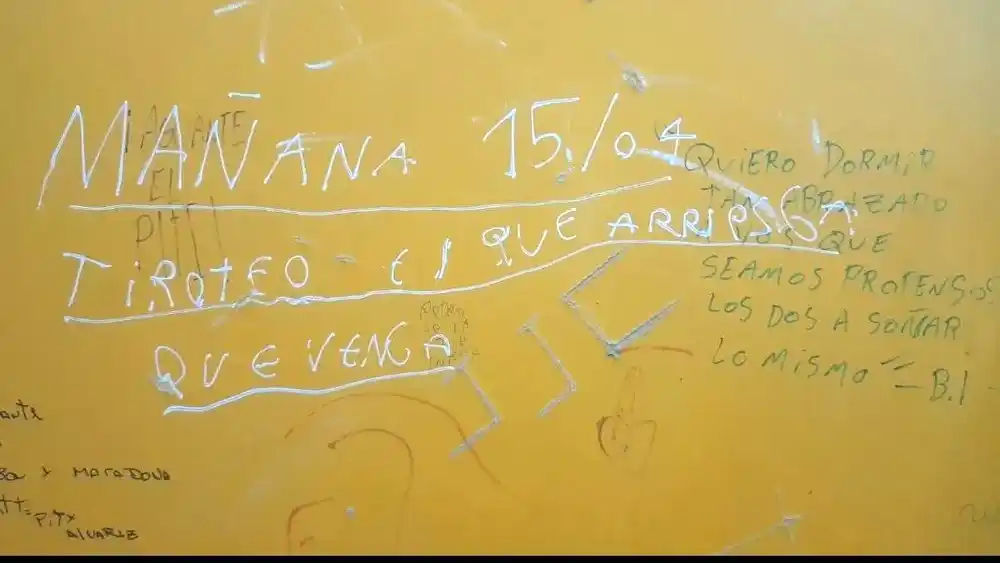 MAÑANA 15/04
TIROTEO El QUE ARRIESGA
QUE VENGA
AGANTE
El
Pitti
QUIERO DORMIR
TAN ABRAZADO
A VOS QUE
SEAMOS PROPENSOS
LOS DOS A SOÑAR
LO MISMO" – B.I
ante
x MARADONA
Pity
Alvarez